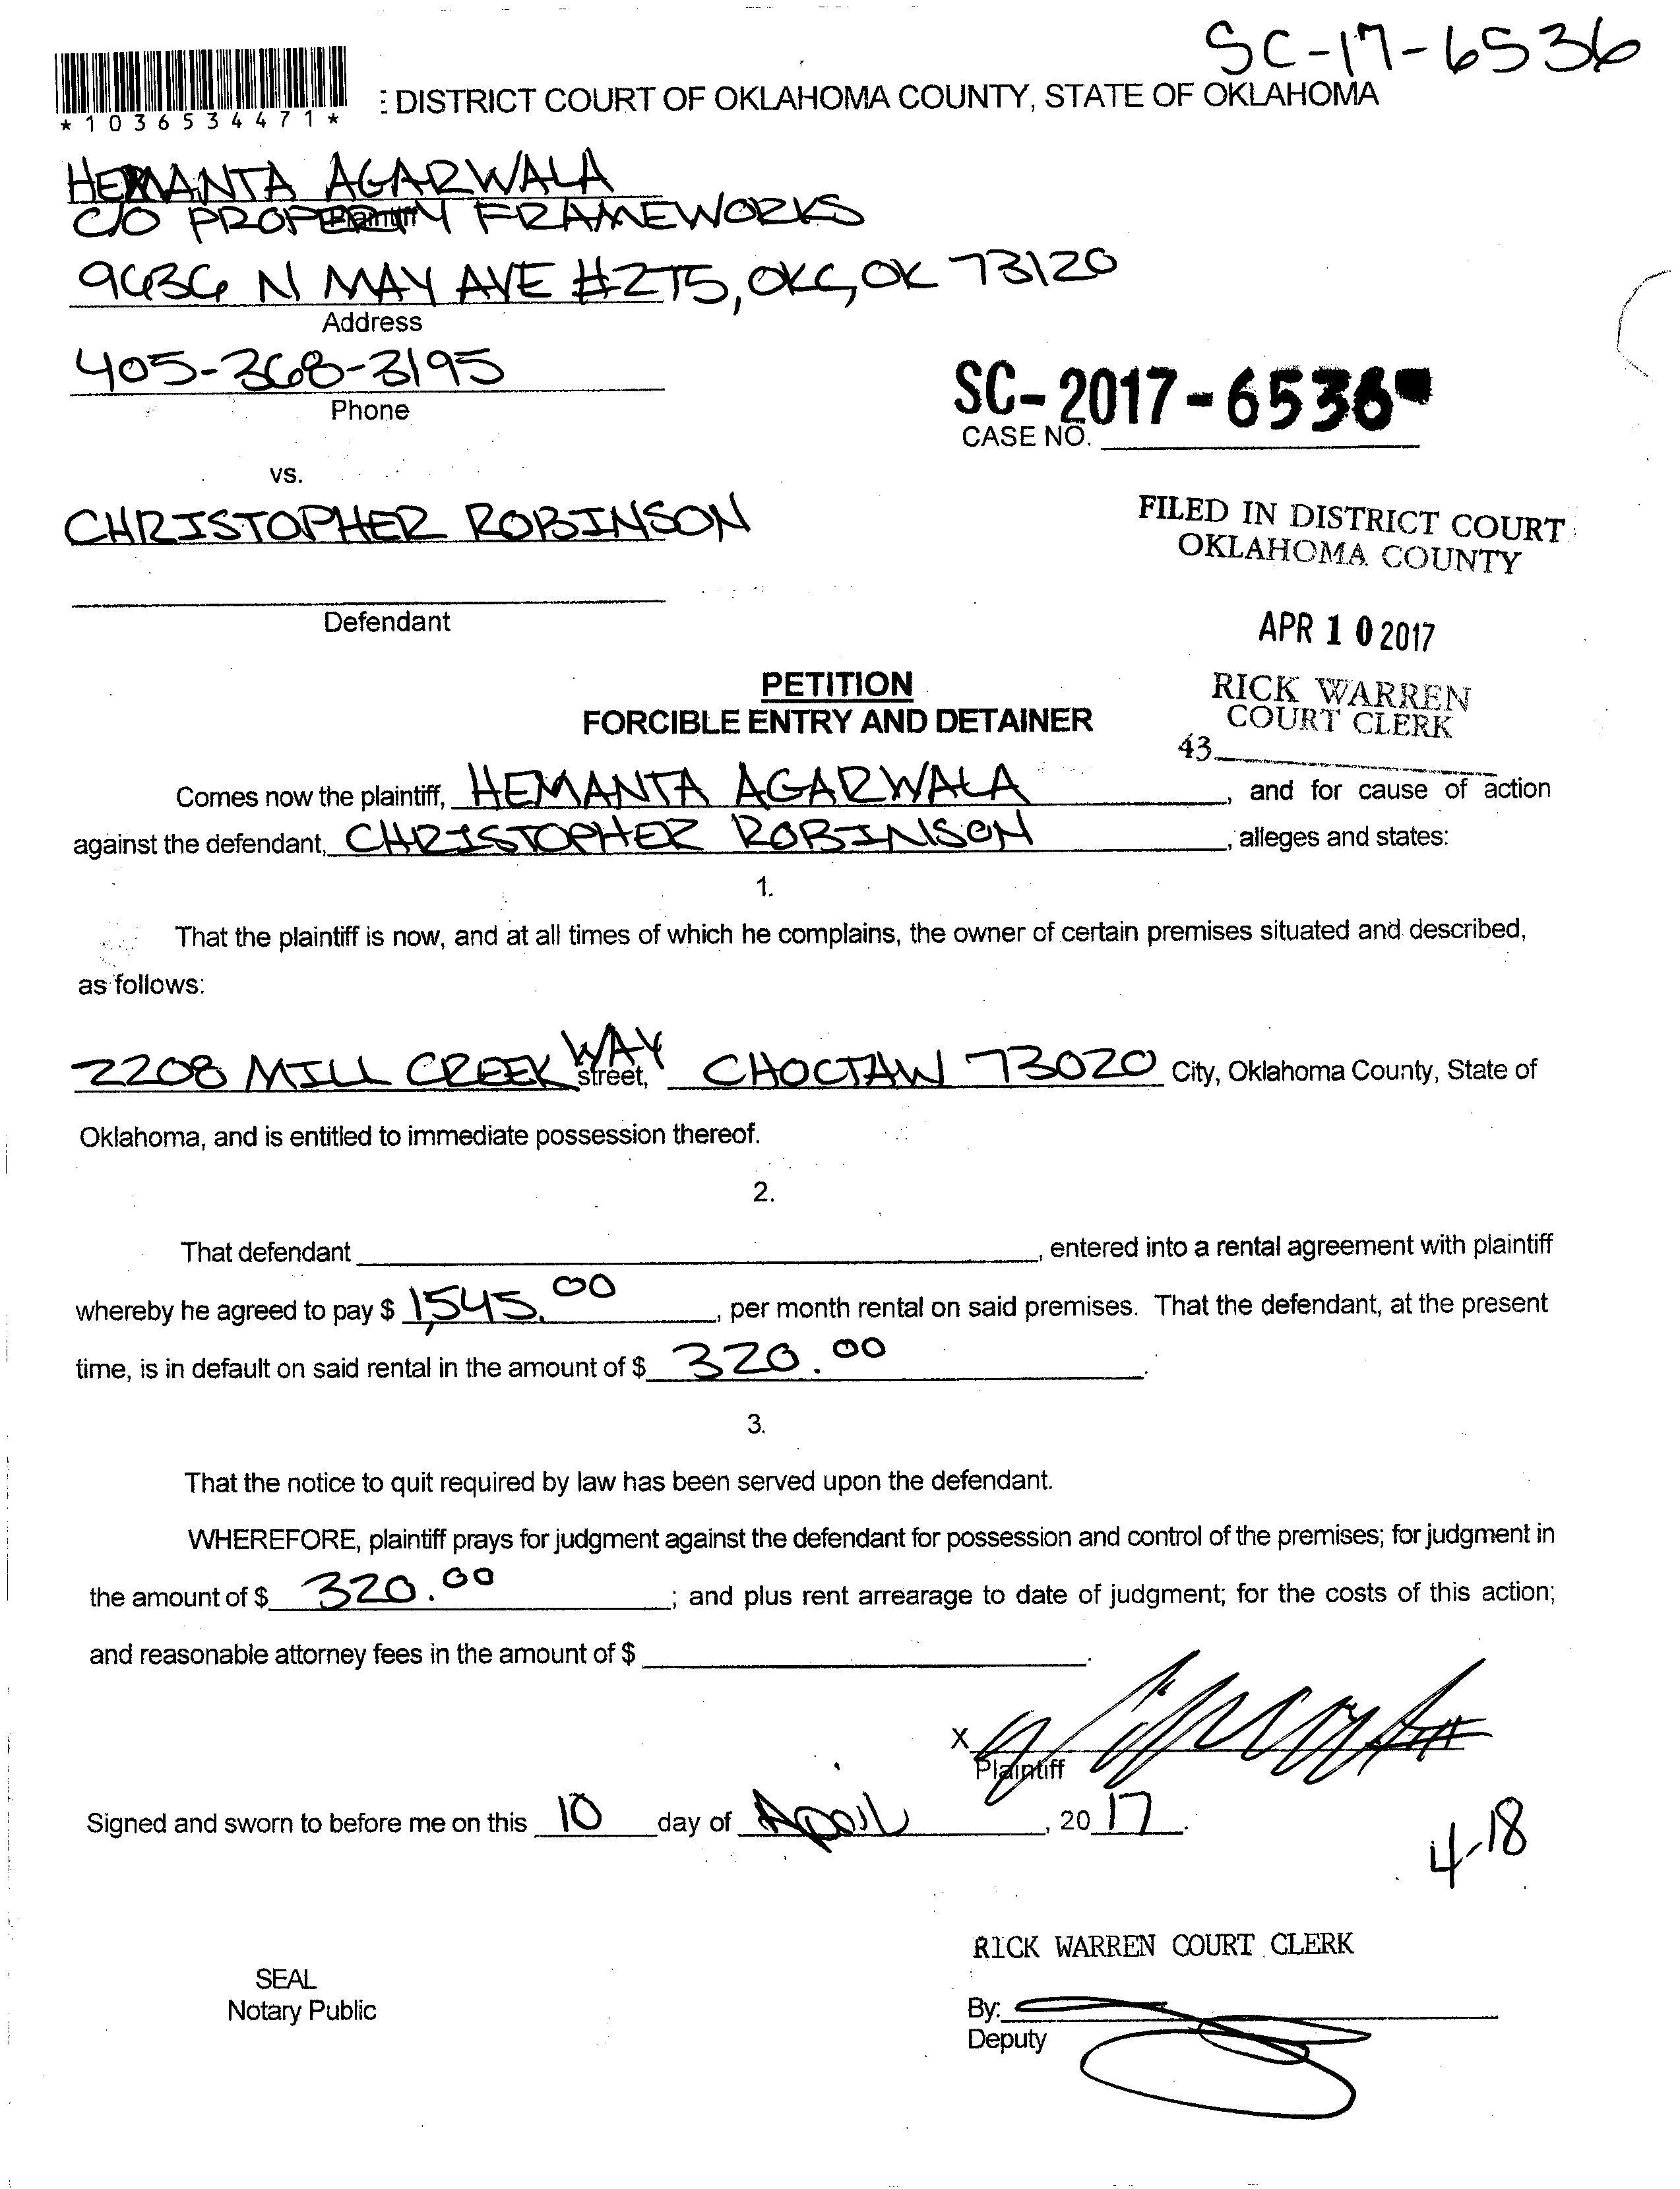 SC-17-6536
*1036534471*
: DISTRICT COURT OF OKLAHOMA COUNTY, STATE OF OKLAHOMA
HEMANTA AGARWALA
Plaintiff
C/O PROPERTY FRAMEWORKS
9636 N MAY AVE #275, OKC, OK 73120
Address
405-368-3195
Phone
SC-2017-6536
CASE NO.
vs.
CHRISTOPHER ROBINSON
Defendant
FILED IN DISTRICT COURT
OKLAHOMA COUNTY
APR 10 2017
RICK WARREN
COURT CLERK
43
PETITION
FORCIBLE ENTRY AND DETAINER
Comes now the plaintiff, HEMANTA AGARWALA, and for cause of action
against the defendant, CHRISTOPHER ROBINSON, alleges and states:
1.
That the plaintiff is now, and at all times of which he complains, the owner of certain premises situated and described,
as follows:
2208 MILL CREEK WAY street, CHOCTAW 73020 City, Oklahoma County, State of
Oklahoma, and is entitled to immediate possession thereof.
2.
That defendant , entered into a rental agreement with plaintiff
whereby he agreed to pay $ 1,545.00, per month rental on said premises. That the defendant, at the present
time, is in default on said rental in the amount of $ 320.00.
3.
That the notice to quit required by law has been served upon the defendant.
WHEREFORE, plaintiff prays for judgment against the defendant for possession and control of the premises; for judgment in
the amount of $ 320.00; and plus rent arrearage to date of judgment; for the costs of this action;
and reasonable attorney fees in the amount of $ .
X
Plaintiff
Signed and sworn to before me on this 10 day of April, 2017.
4-18
RICK WARREN COURT CLERK
SEAL
Notary Public
By:
Deputy